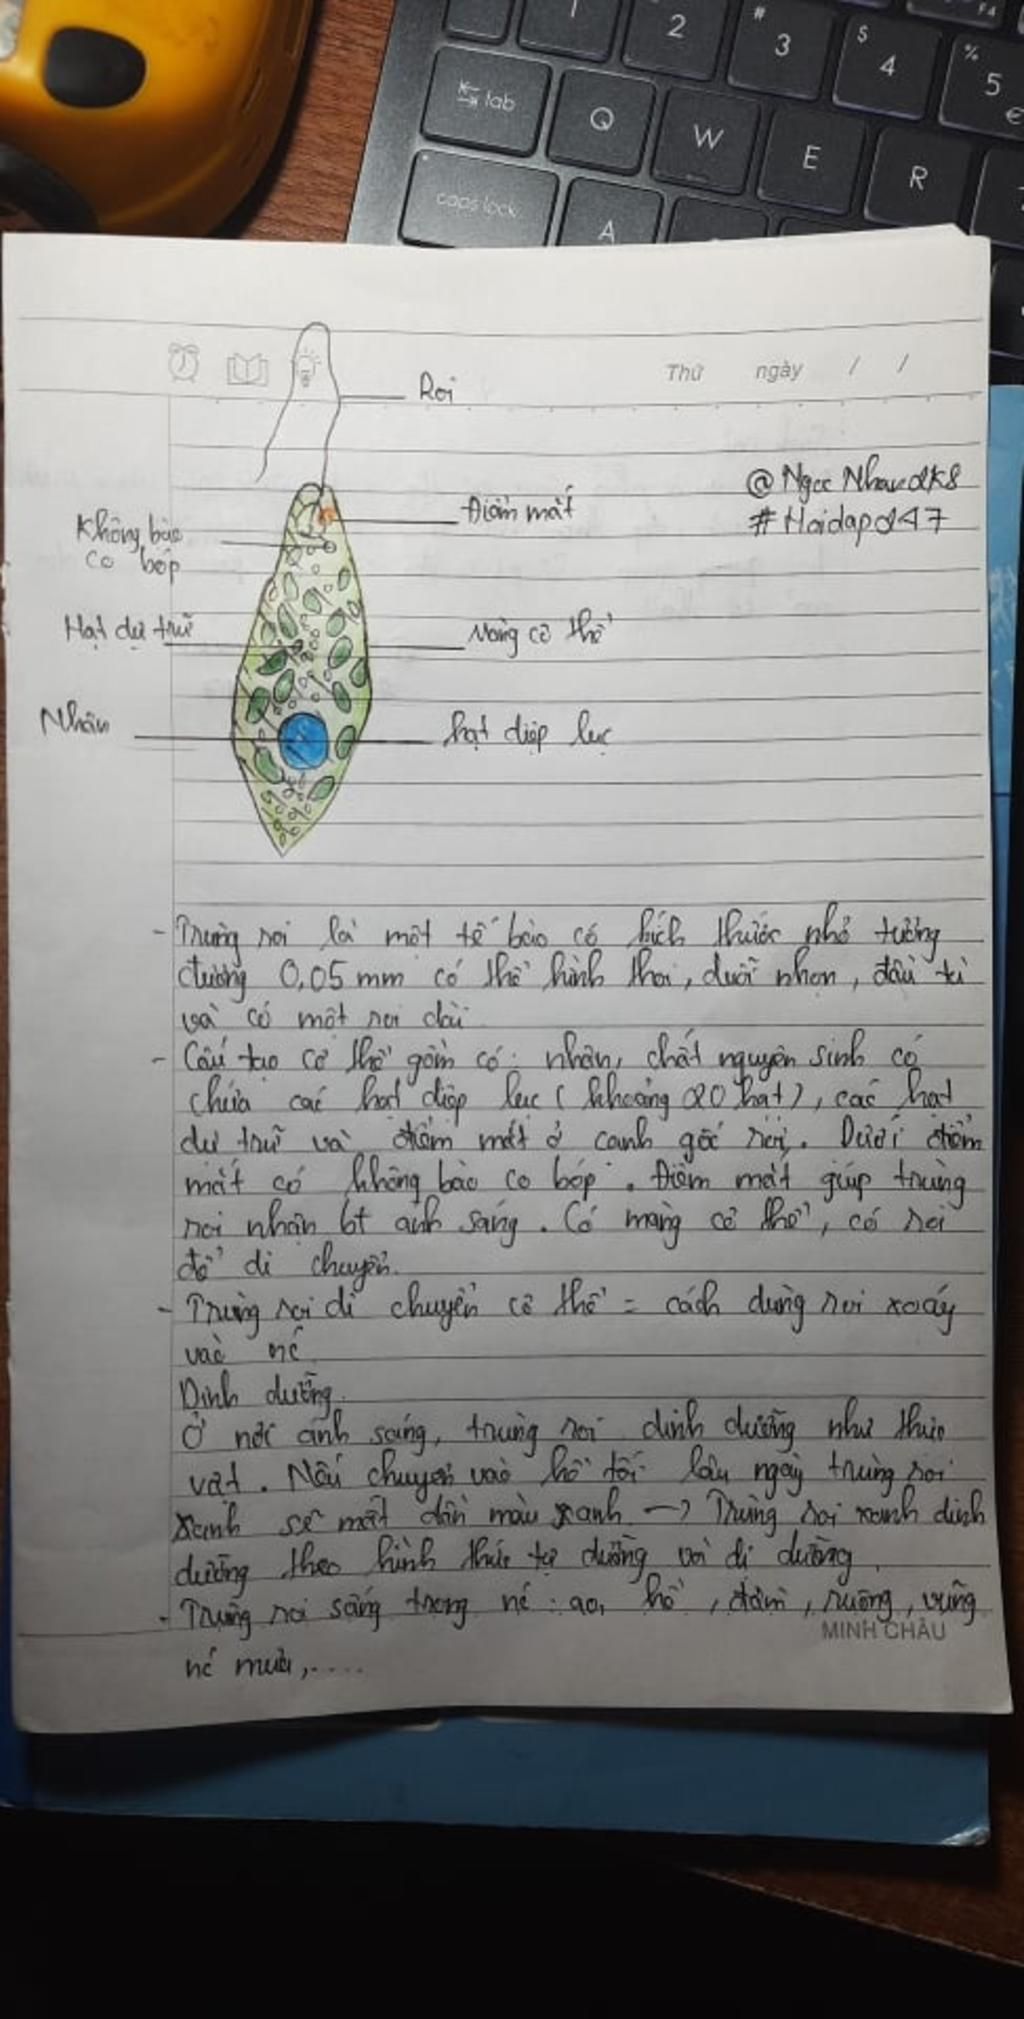 1
2
#
3
$
4
%
5
€
F4
tab
Q
W
E
R
caps lock
A
Thứ ngày / /
Roi
@NgocNhavdk8
#Hoidapd47
Điểm mắt
Không bào
co bóp
Hạt dự trữ
Màng cơ thể
Nhân
hạt diệp lục
- Trùng roi là một tế bào có kích thước nhỏ tương
đương 0,05 mm có thể hình thoi, đuôi nhọn, đầu tù
và có một roi dài
- Cấu tạo cơ thể gồm có: nhân, chất nguyên sinh có
chứa các hạt diệp lục (khoảng 20 hạt), các hạt
dự trữ và điểm mắt ở cạnh gốc roi. Dưới điểm
mắt có không bào co bóp. Điểm mắt giúp trùng
roi nhận bt ánh sáng. Có màng cơ thể, có roi
để di chuyển.
- Trùng roi di chuyển cơ thể = cách dùng roi xoáy
vào nc
Dinh dưỡng.
Ở nơi ánh sáng, trùng roi dinh dưỡng như thực
vật. Nếu chuyển vào hồ tối lâu ngày trùng roi
xanh sẽ mất dần màu xanh → Trùng roi xanh dinh
dưỡng theo hình thức tự dưỡng và dị dưỡng.
- Trùng roi sống trong nc: ao, hồ, đầm, ruộng, vũng
MINH CHÂU
nc mưa,....